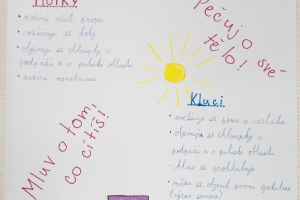 HOLKY
• začíná růst prsou
• rozšiřují se boky
• objevují se chloupky v
podpaží a v pubické oblasti
• začíná menstruace
Pečuj o své
tělo!
Mluv o tom,
co cítíš!
Kluci
• zvětšuje se penis a varlata
• objevují se chloupky v
podpaží a v pubické oblasti
• hlas se prohlubuje
• může se objevit první ejakulace